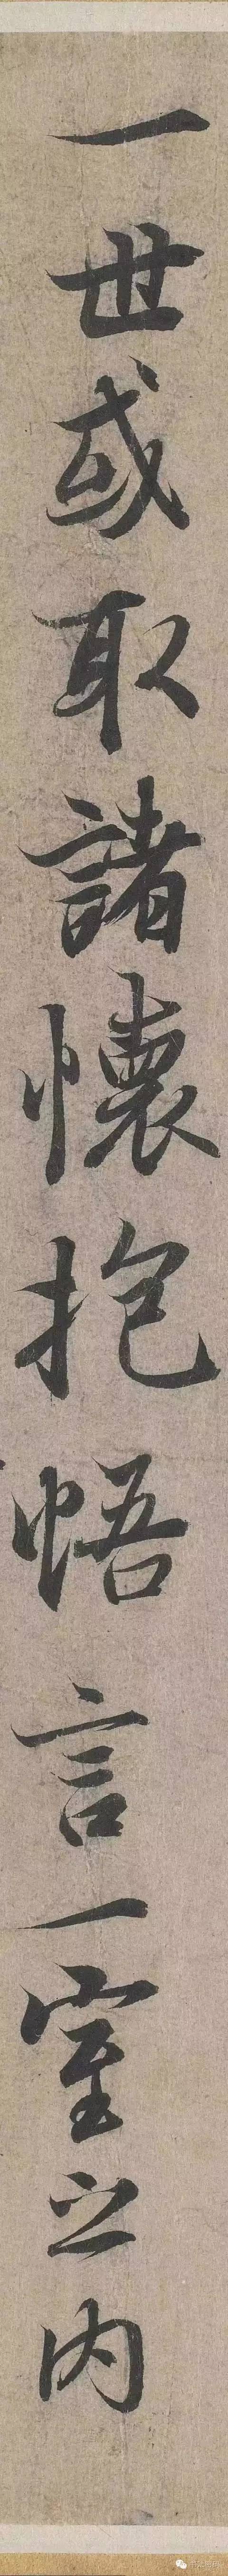 一世或取諸懷抱悟言一室之內